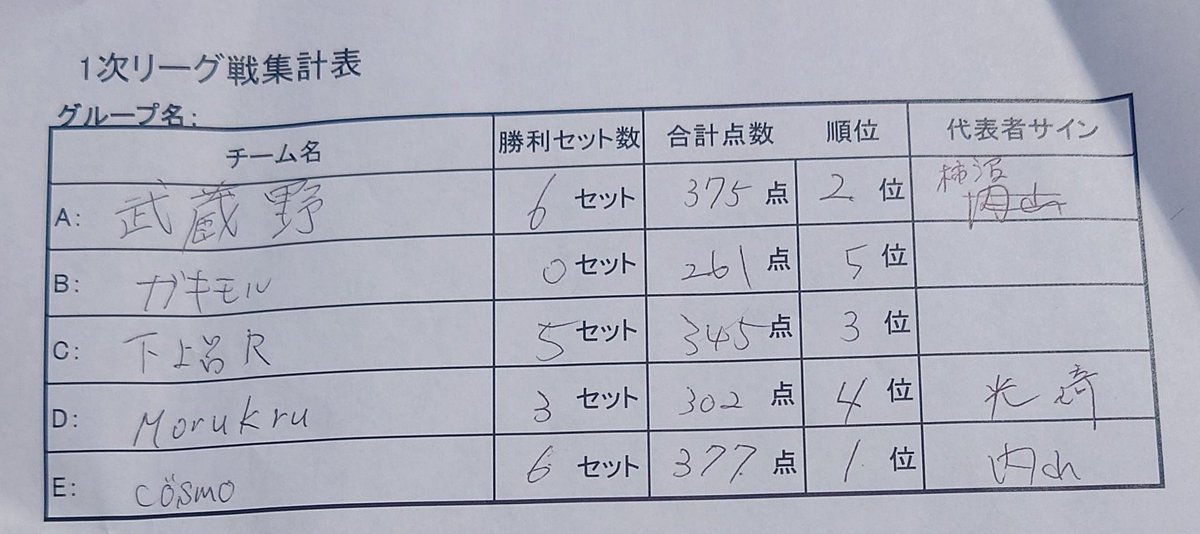 1次リーグ戦集計表
グループ名:
チーム名 勝利セット数 合計点数 順位 代表者サイン
A: 武蔵野 6 セット 375 点 2 位 柿沼
B: ガキモル 0 セット 261 点 5 位
C: 下上呂R 5 セット 345 点 3 位
D: Morukru 3 セット 302 点 4 位
E: cösmo 6 セット 377 点 1 位 内山